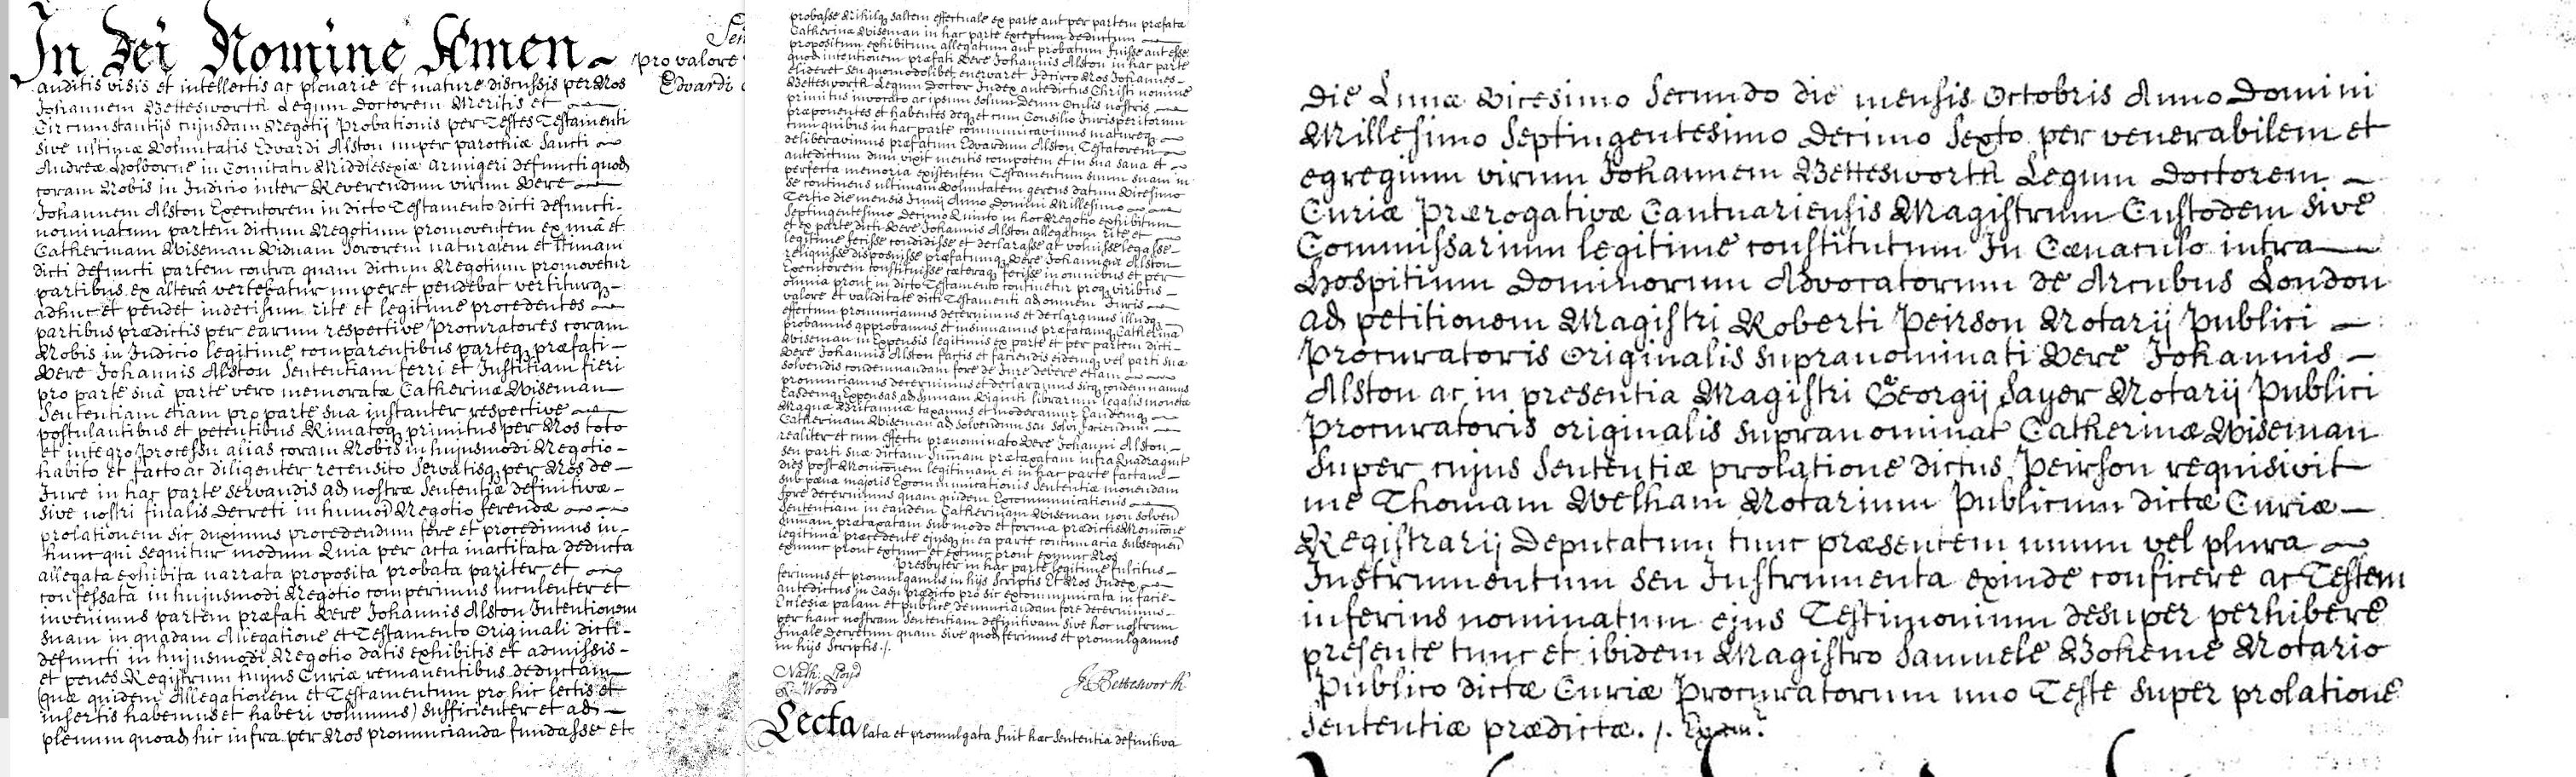 In Dei Nomine Amen
auditis visis et intellectis ac plenarie et mature discussis per Nos
Johannem Bettesworth Legum Doctorem Meritis et
Circumstantijs cujusdam Negotij Probationis per Testes Testamenti
sive ultimæ Voluntatis Edvardi Alston nuper parochiæ Sancti
Andreæ Holborne in Comitatu Middlesexiæ Armigeri defuncti quod
coram Nobis in Judicio inter Reverendum virum Vere
Johannem Alston Executorem in dicto Testamento dicti defuncti
nominatum partem dictum Negotium promoventem ex unâ et
Catherinam Wiseman Viduam Sororem naturalem et ltimam
dicti defuncti partem contra quam dictum Negotium promovetur
partibus ex alterâ vertebatur nuper et pendebat vertiturq
adhuc et pendet indecisum rite et legitime procedentes
partibus prædictis per earum respective Procuratores coram
Nobis in Judicio legitime comparentibus parteq præfati
Vere Johannis Alston Sententiam ferri et Justitiam fieri
pro parte suâ parte vero memoratæ Catherinæ Wiseman
Sententiam etiam pro parte sua instanter respective
postulantibus et petentibus Rimatoq primitus per Nos toto
et integro processu alias coram Nobis in hujusmodi Negotio
habito et facto ac diligenter recensito Servatisq per Nos de
Jure in hac parte servandis ad nostræ Sententiæ definitivæ
sive nostri finalis decreti in humoi Negotio ferendæ
prolationem sic duximus procedendum fore et procedimus in
hunc qui sequitur modum Quia per acta inactitata deducta
allegata exhibita narrata proposita probata pariter et
confessata in hujusmodi Negotio comperimus luculenter et
invenimus partem præfati Vere Johannis Alston Intentionem
suam in quadam Allegatione et Testamento Originali dicti
defuncti in hujusmodi Negotio datis exhibitis et admissis
et penes Registrum hujus Curiæ remanentibus deductam
(quæ quidem Allegationem et Testamentum pro hic lectis et
insertis habemus et haberi volumus) sufficienter et ad
plenum quoad hic infra per Nos pronuncianda fundasse et
Sen
pro valore
Edvardi
probasse Nihilq saltem effectuale ex parte aut per partem præfatæ
Catherinæ Wiseman in hac parte exceptum deductum
propositum exhibitum allegatum aut probatum fuisse aut esse
quod intentionem præfati Vere Johannis Alston in hac parte
elideret seu quomodolibet enervaret Idcirco Nos Johannes
Bettesworth Legum Doctor Judex antedictus Christi nomine
primitus invocato ac ipsum solum Deum Oculis nostris
præponentes et habentes deq et cum Consilio Jurisperitorum
cum quibus in hac parte communicavimus matureq
deliberavimus præfatum Edvardum Alston Testatorem
antedictum dum vixit mentis compotem et in sua sana et
perfecta memoria existentem Testamentum suum suam in
se continens ultimam Voluntatem gerens datum Vicesimo
Tertio die mensis Junij Anno Domini Millesimo
Septingentesimo Decimo Quinto in hoc Negotio exhibitum
et ex parte dicti Vere Johannis Alston allegatum rite et
legitime fecisse condidisse et declarasse ac voluisse legasse
reliquisse disposuisse præfatumq Vere Johannem Alston
Executorem constituisse cæteraq fecisse in omnibus et per
omnia prout in dicto Testamento continetur proq viribus
valore et validitate dicti Testamenti ad omnem Juris
effectum pronunciamus decernimus et declaramus illudq
probamus approbamus et insinuamus præfatamq Catherinam
Wiseman in Expensis legitimis ex parte et per partem dicti
Vere Johannis Alston factis et faciendis eidemq vel parti suæ
solvendis condemnandam fore de Jure debere etiam
pronunciamus decernimus et declaramus sicq condemnamus
Easdemq Expensas ad Summam Viginti librarum legalis monetæ
Magnæ Britanniæ taxamus et moderamur Eandemq
Catherinam Wiseman ad solvendum seu solvi faciendum
realiter et cum effectu prænominato Vere Johanni Alston
seu parti suæ dictam Summam prætaxatam infra Quadraginta
dies post Monicõnem legitimam ei in hac parte factam
sub pœna majoris Excommunicationis Sententiæ monendam
fore decernimus quam quidem Excommunicationis
Sententiam in eandem Catherinam Wiseman non solven
Summam prætaxatam sub modo et forma prædictis Monicõne
legitima præcedente ejusq in ea parte contumacia subsequen
exnunc prout extunc et extunc prout exnunc Nos
Presbyter in hac parte legitime fulcitus
ferimus et promulgamus in hijs Scriptis Et Nos Judex
antedictus in Casu prædicto pro sic excommunicata in facie
Ecclesiæ palam et publice denunciandam fore decernimus
per hanc nostram Sententiam definitivam sive hoc nostrum
finale decretum quam sive quod ferimus et promulgamus
in hijs Scriptis ./.
Nath: Lloyd
R Wood
J Bettesworth
Lecta lata et promulgata fuit hæc Sententia definitiva
Die Lunæ Vicesimo Secundo die mensis Octobris Anno Domini
Millesimo Septingentesimo Decimo Sexto per venerabilem et
egregium virum Johannem Bettesworth Legum Doctorem
Curiæ Prærogativæ Cantuariensis Magistrum Custodem sive
Commissarium legitime constitutum In Cænaculo intra
Hospitium Dominorum Advocatorum de Arcubus London
ad petitionem Magistri Roberti Peirson Notarij Publici
Procuratoris Originalis supranominati Vere Johannis
Alston ac in presentia Magistri Georgij Sayer Notarij Publici
Procuratoris originalis supranominat Catherinæ Wiseman
Super cujus Sententiæ prolatione dictus Peirson requisivit
me Thomam Welham Notarium Publicum dictæ Curiæ
Registrarij Deputatum tunc præsentem unum vel plura
Instrumentum seu Instrumenta exinde conficere ac Testem
inferius nominatum ejus Testimonium desuper perhibere
presente tunc et ibidem Magistro Samuele Boheme Notario
Publico dictæ Curiæ Procuratorum uno Teste super prolatione
Sententiæ prædictæ ./. Exam: